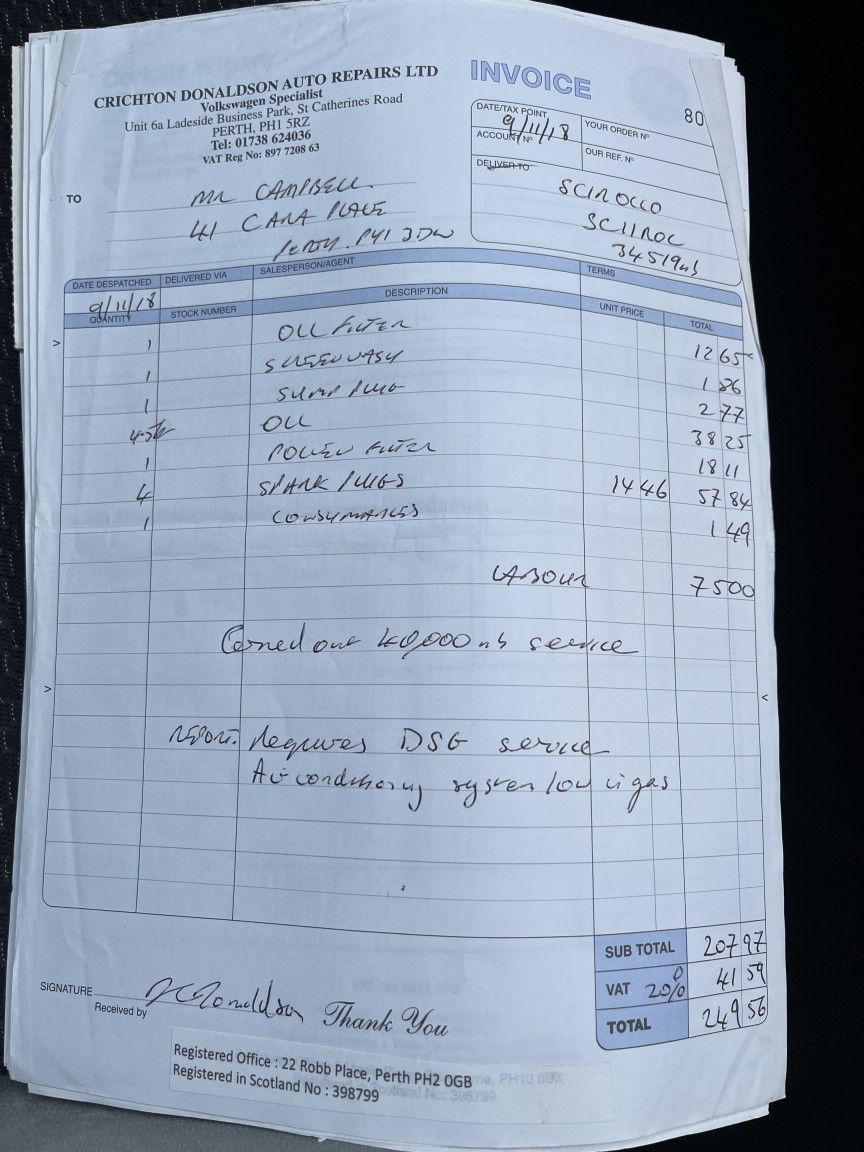 INVOICE
80
CRICHTON DONALDSON AUTO REPAIRS LTD
Volkswagen Specialist
Unit 6a Ladeside Business Park, St Catherines Road
PERTH, PH1 5RZ
Tel: 01738 624036
VAT Reg No: 897 7208 63
DATE/TAX POINT 9/11/18 YOUR ORDER Nº
ACCOUNT Nº OUR REF. Nº
DELIVER TO
SCIROCCO
SC11ROC
34519mls
TO MR CAMPBELL.
41 CARA PLACE
PERTH. PH1 3DW
DATE DESPATCHED DELIVERED VIA SALESPERSON/AGENT TERMS
9/11/18
QUANTITY STOCK NUMBER DESCRIPTION UNIT PRICE TOTAL
1 OIL FILTER 12 65
1 SCREENWASH 1 86
1 SUMP PLUG 2 77
OIL 38 25
1 POLLEN FILTER 18 11
4 SPARK PLUGS 14 46 57 84
1 CONSUMABLES 1 49
LABOUR 75 00
Carried out 40,000 mls service
REPORT. Requires DSG service
Air conditioning system low in gas
SUB TOTAL 207 97
VAT 20% 41 59
TOTAL 249 56
SIGNATURE
Received by
Thank You
Registered Office : 22 Robb Place, Perth PH2 0GB
Registered in Scotland No : 398799